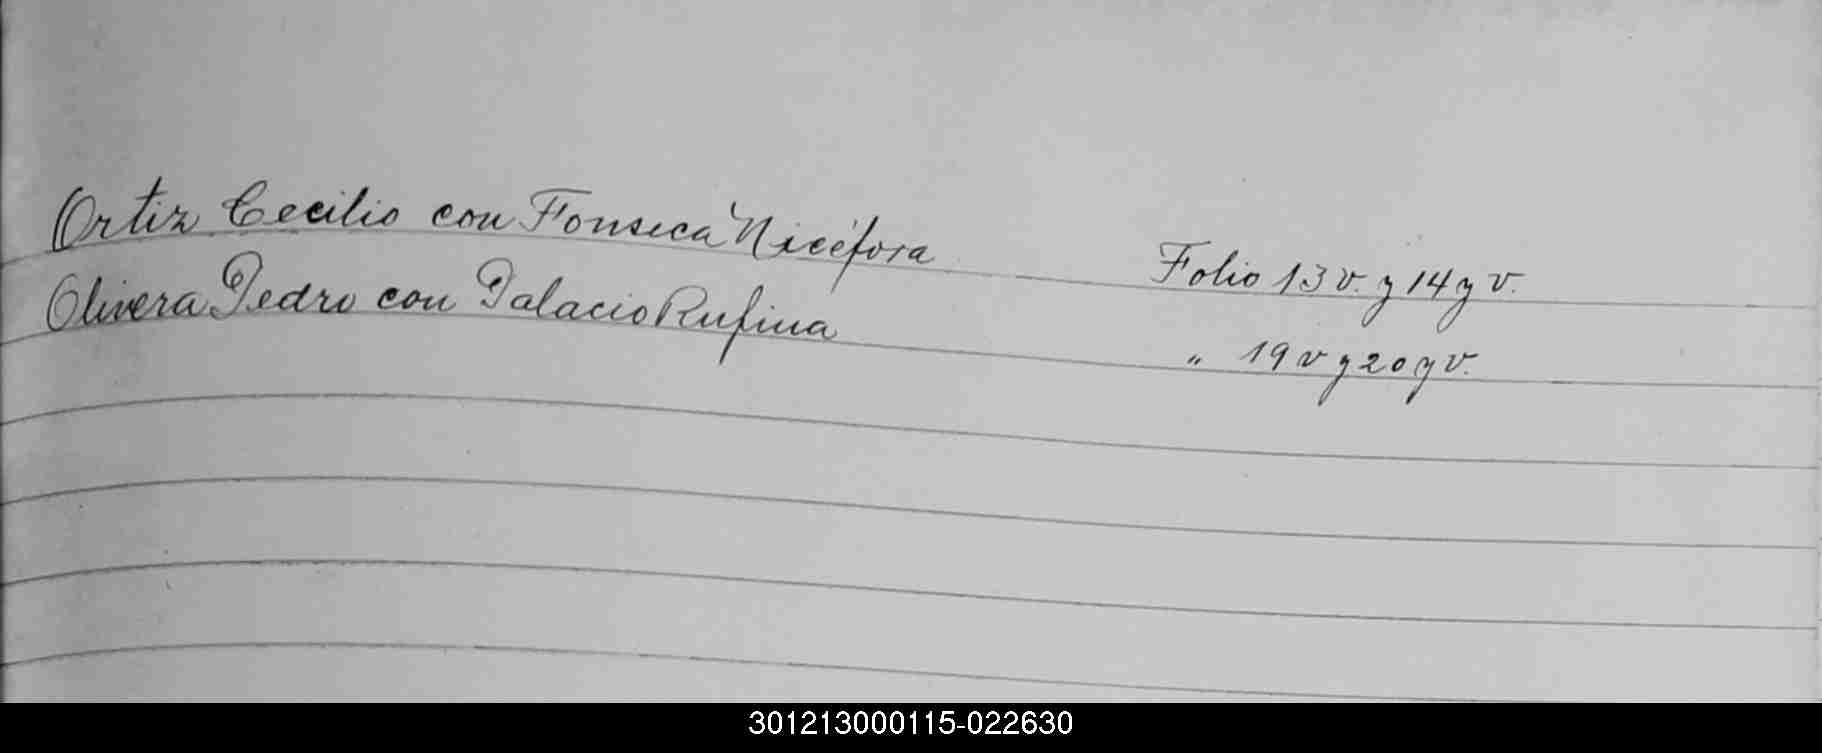 Ortiz Cecilio con Fonseca Nicéfora Folio 13 v. y 14 y v.
Olivera Pedro con Palacio Rufina " 19 v y 20 y v.
301213000115-022630